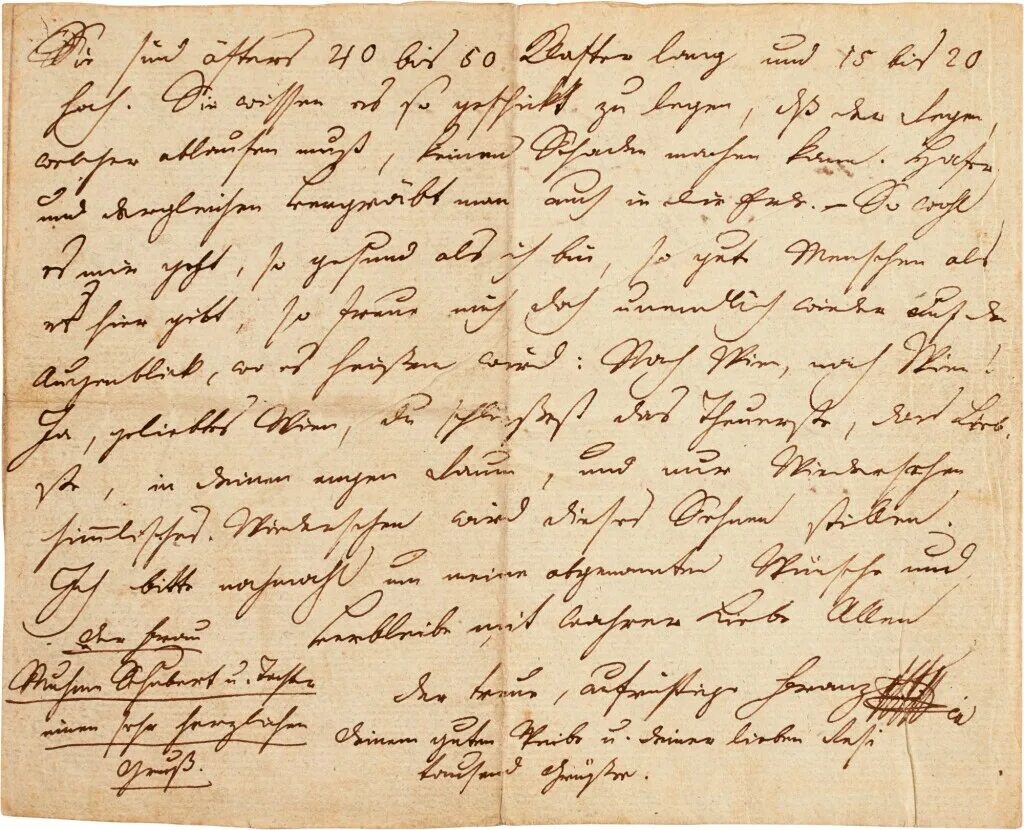 Sie sind öfters 40 bis 50 Klafter lang und 15 bis 20
hoch. Sie wissen es so geschickt zu legen, dß der Regen,
welcher ablaufen muß, keinen Schaden machen kann. Hafer
und dergleichen vergräbt man auch in die Erde. – So wohl
es mir geht, so gesund als ich bin, so gute Menschen als
es hier gibt, so freue mich doch unendlich wieder auf den
Augenblick, wo es heißen wird: Nach Wien, nach Wien!
Ja, geliebtes Wien, du schließest das Theuerste, das Lieb-
ste, in deinen engen Raum, und nur Wiedersehen
himmlisches Wiedersehen wird dieses Sehnen stillen.
Ich bitte nochmahl um meine obgenannten Wünsche und
verbleibe mit wahrer Liebe Allen
der treue, aufrichtige Franz
Deinem guten Weibe u. deiner lieben Resi
tausend Grüße.
Der Frau
Muhme Schubert u. Tochter
einen sehr herzlichen
Gruß.